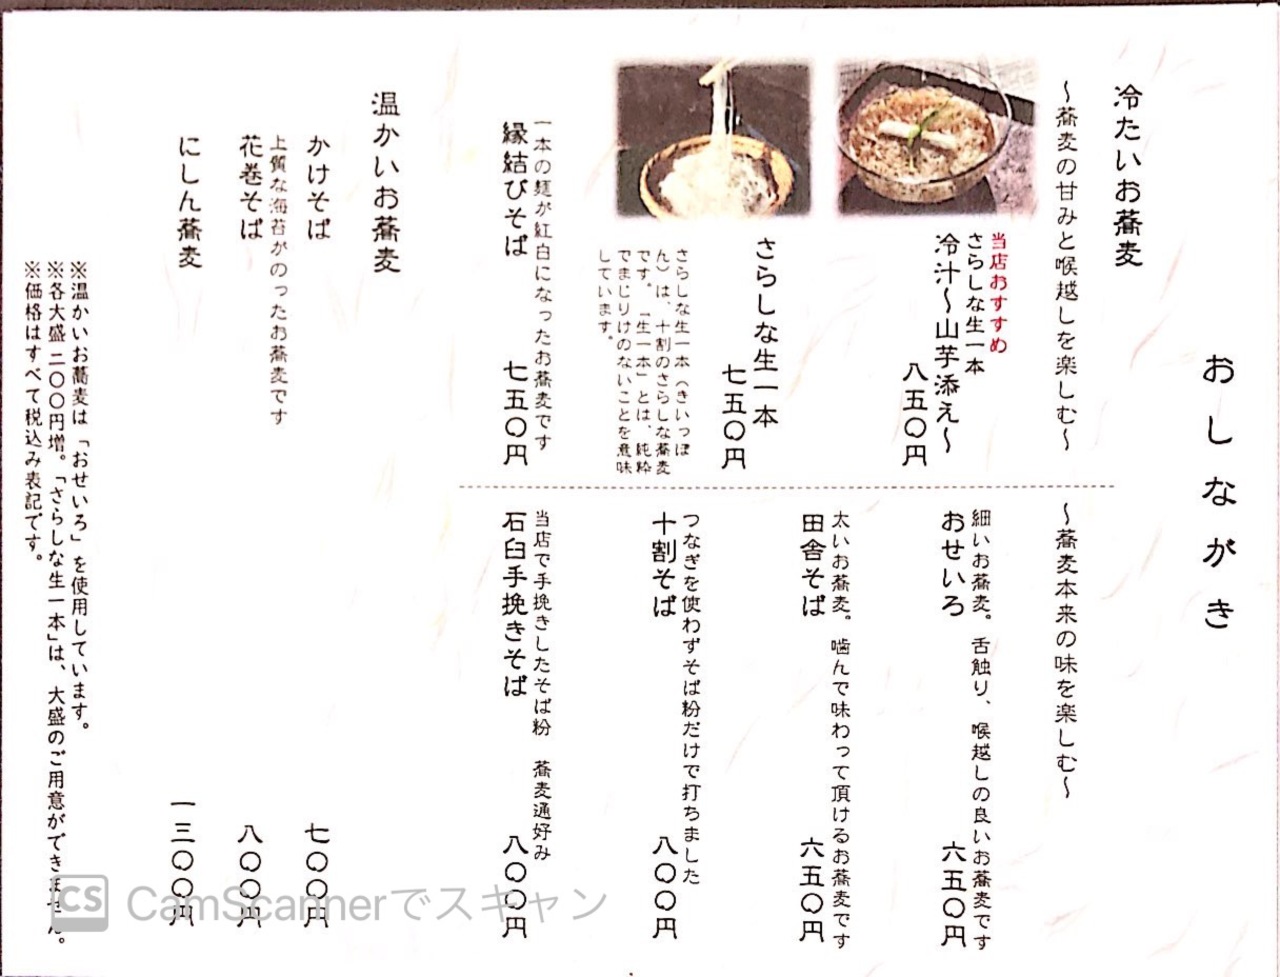 おしながき
冷たいお蕎麦
〜蕎麦の甘みと喉越しを楽しむ〜
当店おすすめ
さらしな生一本
冷汁〜山芋添え〜
八五〇円
さらしな生一本
七五〇円
さらしな生一本（きいっぽ
ん）は、十割のさらしな蕎麦
です。「生一本」とは、純粋
でまじりけのないことを意味
しています。
一本の麺が紅白になったお蕎麦です
縁結びそば
七五〇円
〜蕎麦本来の味を楽しむ〜
細いお蕎麦。舌触り、喉越しの良いお蕎麦です
おせいろ
六五〇円
太いお蕎麦。噛んで味わって頂けるお蕎麦です
田舎そば
六五〇円
つなぎを使わずそば粉だけで打ちました
十割そば
八〇〇円
当店で手挽きしたそば粉 蕎麦通好み
石臼手挽きそば
八〇〇円
温かいお蕎麦
かけそば
七〇〇円
上質な海苔がのったお蕎麦です
花巻そば
八〇〇円
にしん蕎麦
一三〇〇円
※温かいお蕎麦は「おせいろ」を使用しています。
※各大盛二〇〇円増。「さらしな生一本」は、大盛のご用意ができません。
※価格はすべて税込み表記です。
CS CamScannerでスキャン